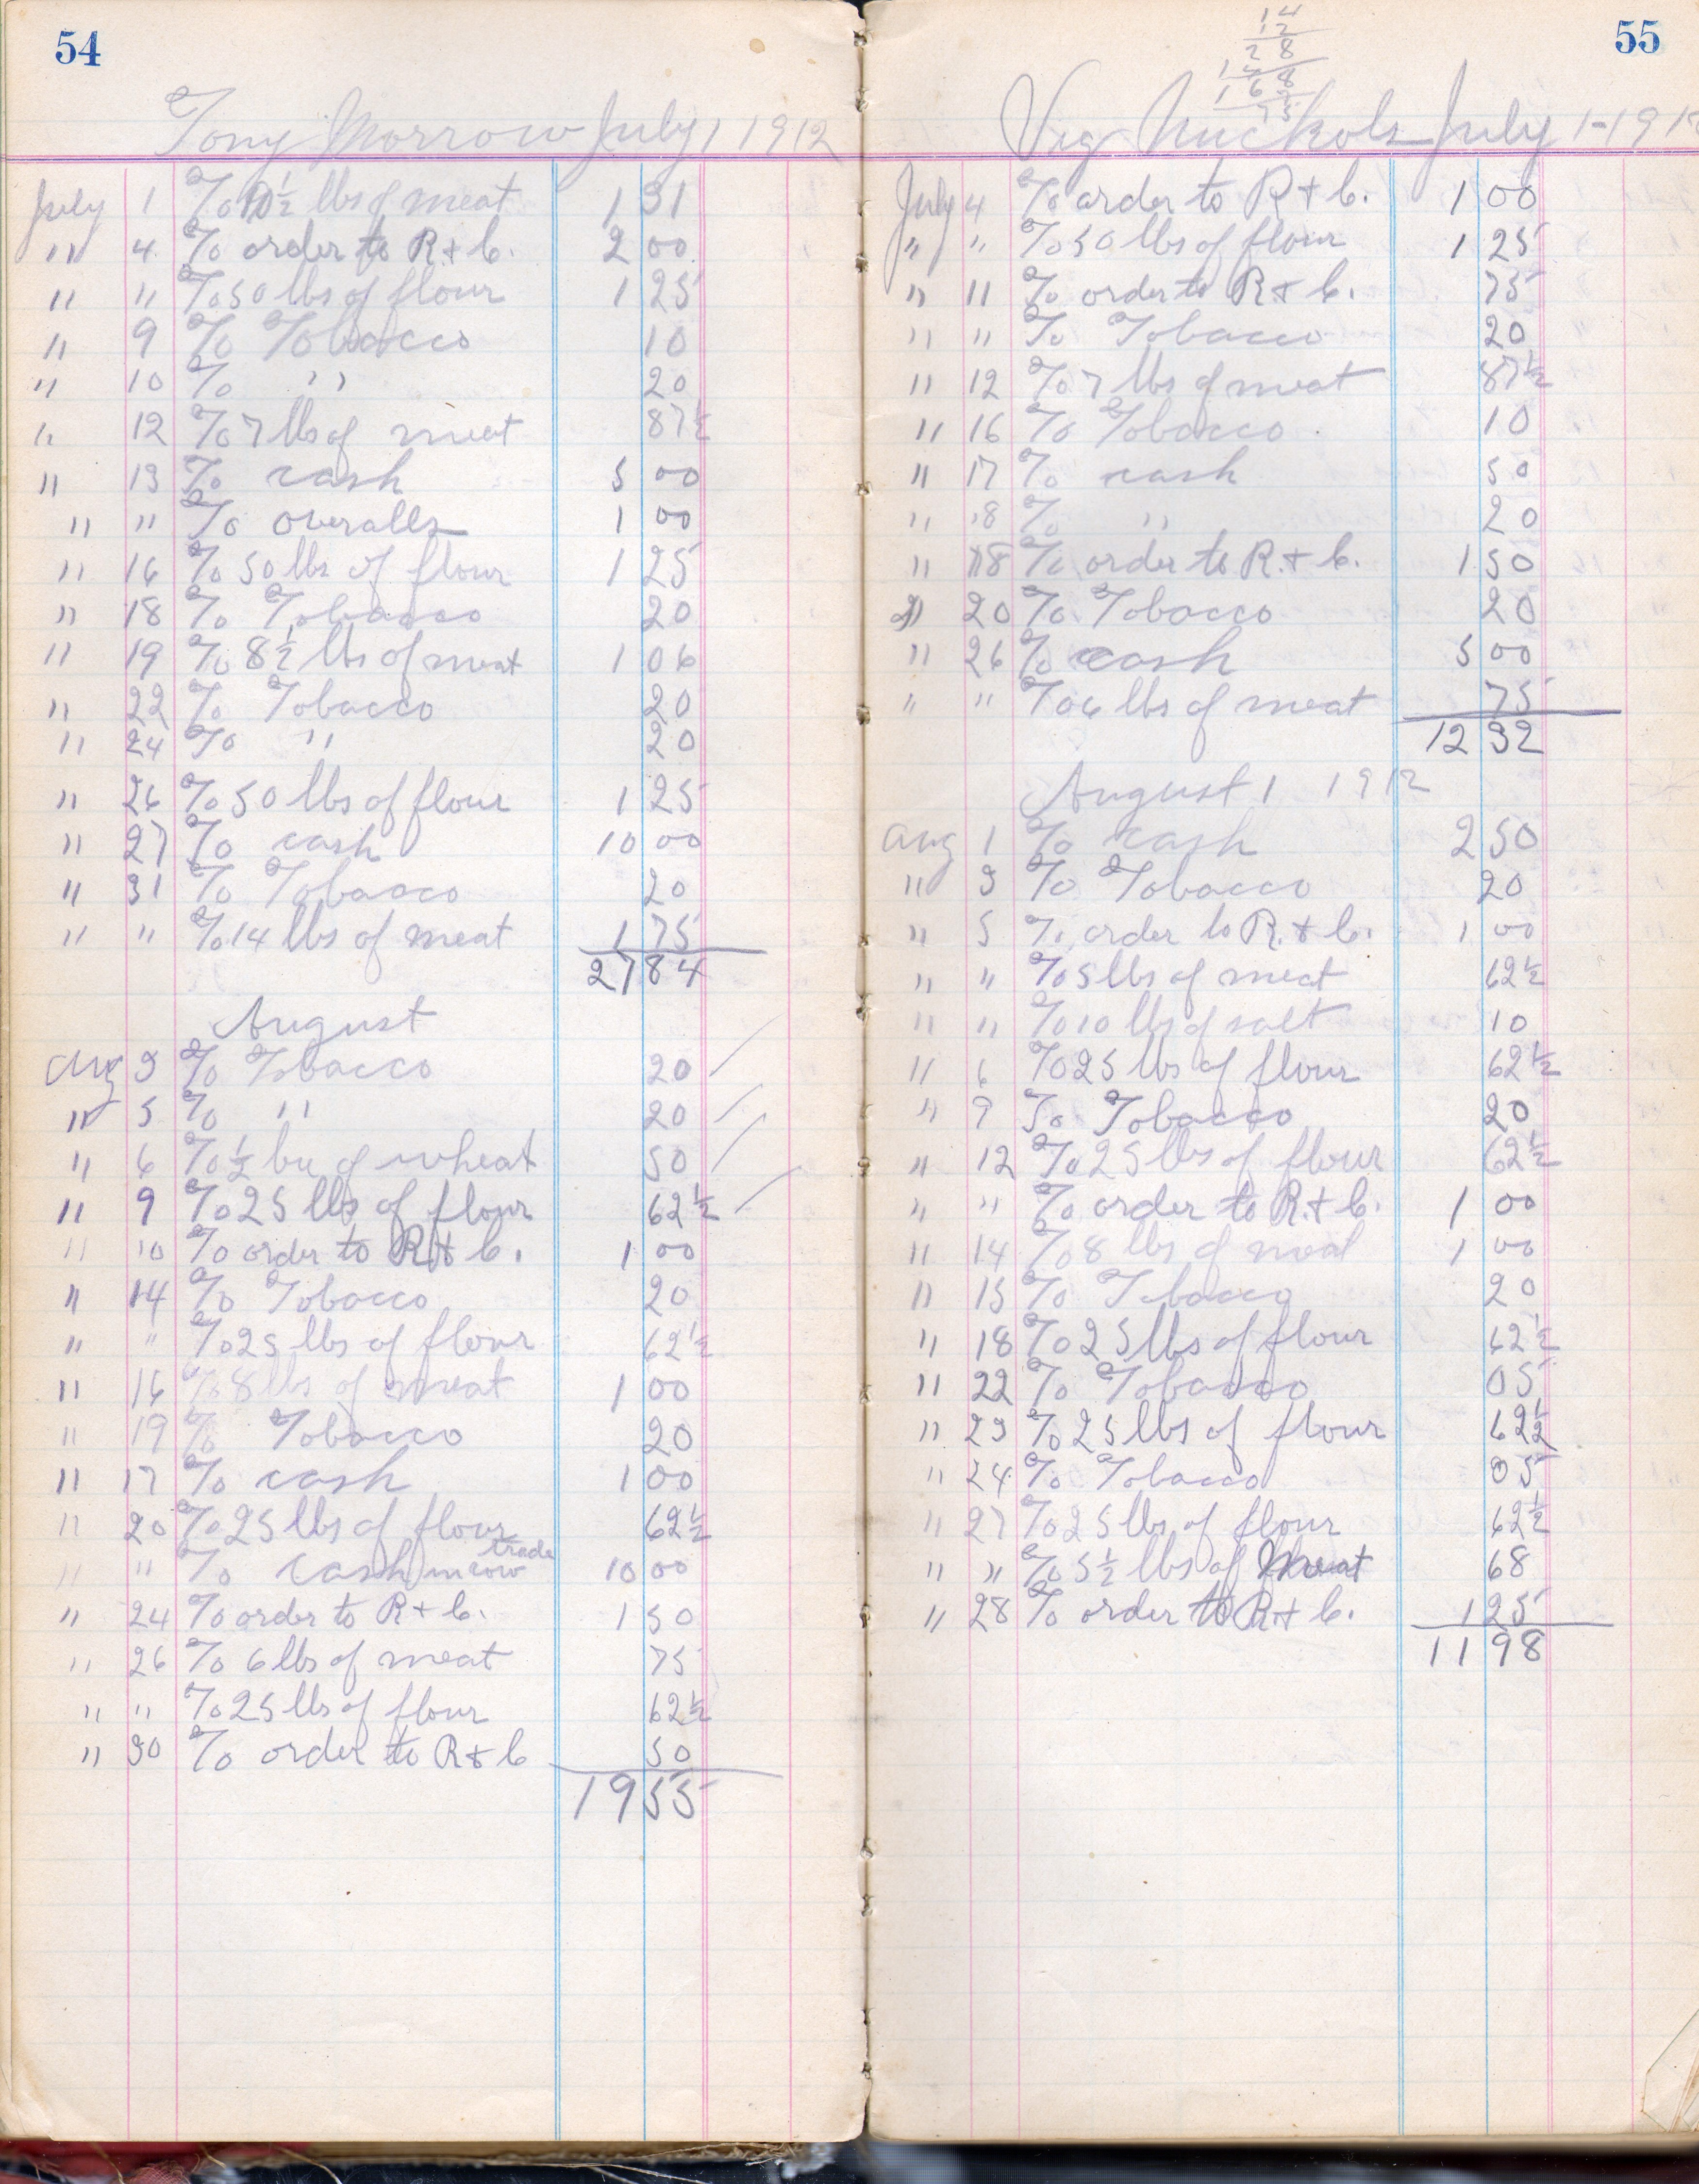 54
Tony Morrow July 1 1912
July 1 To 10½ lbs of meat 1 31
" 4 To order to R + C. 2 00
" " To 50 lbs of flour 1 25
" 9 To Tobacco 10
" 10 To " 20
" 12 To 7 lbs of meat 87½
" 13 To cash 5 00
" " To overalls 1 00
" 16 To 50 lbs of flour 1 25
" 18 To Tobacco 20
" 19 To 8½ lbs of meat 1 06
" 22 To Tobacco 20
" 24 To " 20
" 26 To 50 lbs of flour 1 25
" 27 To cash 10 00
" 31 To Tobacco 20
" " To 14 lbs of meat 1 75
27 84
August
Aug 3 To Tobacco 20
" 5 To " 20
" 6 To ½ bu of wheat 50
" 9 To 25 lbs of flour 62½
" 10 To order to R + C. 1 00
" 14 To Tobacco 20
" " To 25 lbs of flour 62½
" 16 To 8 lbs of meat 1 00
" 19 To Tobacco 20
" 17 To cash 1 00
" 20 To 25 lbs of flour 62½
" " To cash in cow trade 10 00
" 24 To order to R + C. 1 50
" 26 To 6 lbs of meat 75
" " To 25 lbs of flour 62½
" 30 To order to R + C 50
19 55
55
14
12
2 8
1 4
1 6 8
7 5
Vig Nuckols July 1-191
July 4 To order to R + C. 1 00
" " To 50 lbs of flour 1 25
" 11 To order to R + C. 75
" " To Tobacco 20
" 12 To 7 lbs of meat 87½
" 16 To Tobacco 10
" 17 To cash 50
" 18 To " 20
" 18 To order to R. + C. 1 50
" 20 To Tobacco 20
" 26 To cash 5 00
" " To 6 lbs of meat 75
12 32
August 1 1912
Aug 1 To cash 2 50
" 3 To Tobacco 20
" 5 To order to R. + C. 1 00
" " To 5 lbs of meat 62½
" " To 10 lbs of salt 10
" 6 To 25 lbs of flour 62½
" 9 To Tobacco 20
" 12 To 25 lbs of flour 62½
" " To order to R. + C. 1 00
" 14 To 8 lbs of meat 1 00
" 15 To Tobacco 20
" 18 To 25 lbs of flour 62½
" 22 To Tobacco 05
" 23 To 25 lbs of flour 62½
" 24 To Tobacco 05
" 27 To 25 lbs of flour 62½
" " To 5½ lbs of Meat 68
" 28 To order to R + C. 1 25
11 98